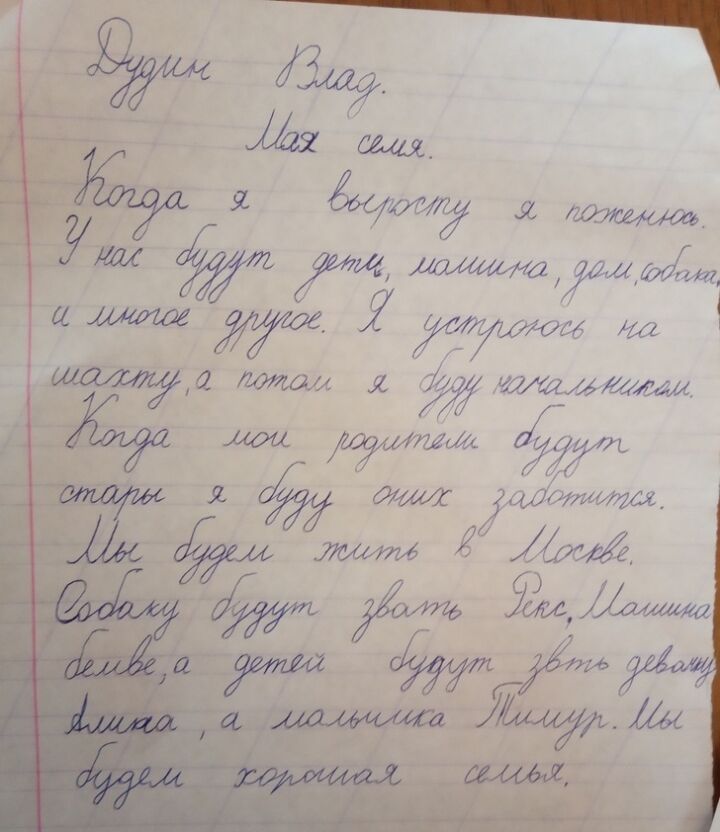 Дудин Влад.
Мая семя.
Когда я выросту я поженюсь.
У нас будут дети, машина, дом, собака,
и многое другое. Я устроюсь на
шахту, а потом я буду начальником.
Когда мои родители будут
стары я буду оних заботится.
Мы будем жить в Москве.
Собаку будут звать Рекс, Машина
бемве, а детей будут звть девочку
Алина, а мальчика Тимур. Мы
будем хорошая семья.